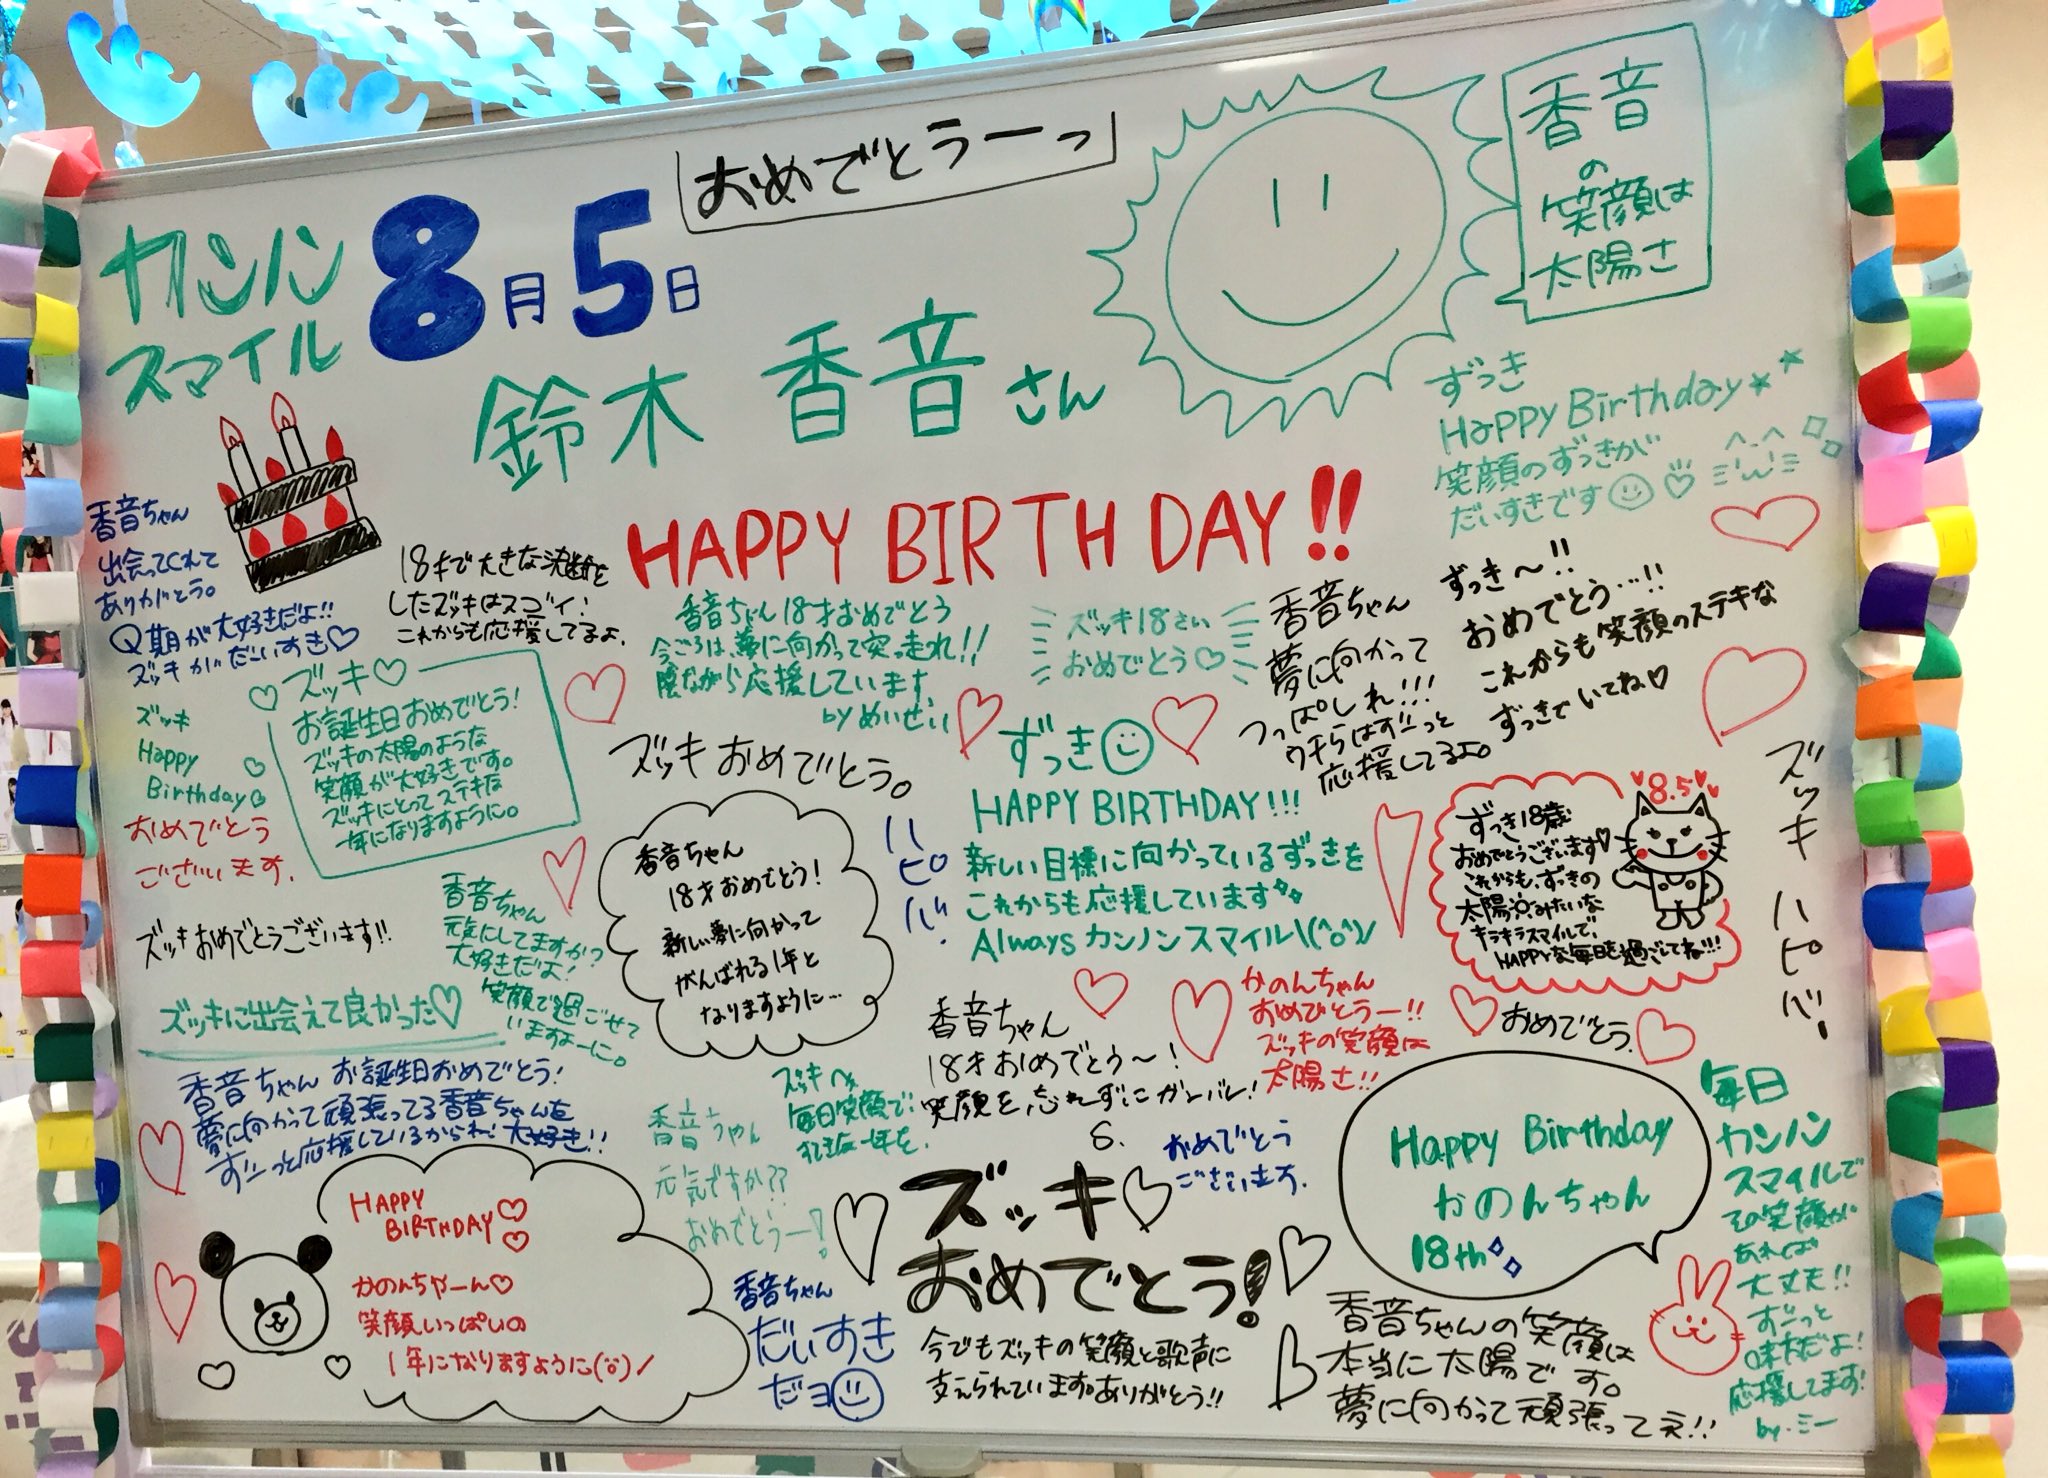 おめでとうーっ
カンノン
スマイル
8月5日
鈴木 香音さん
HAPPY BIRTHDAY!!
香音
の
笑顔は
太陽さ
ずっき
HaPPY Birthday
笑顔のずっきが
だいすきです
香音ちゃん
出会ってくれて
ありがとう。
Q期が大好きだよ!!
ズッキがだーいすき♡
18才で大きな決断を
したズッキはスゴイ!
これからも応援してるよ.
香音ちゃん18才おめでとう
今ごろは、夢に向かって突っ走れ!!
陰ながら応援しています。
by めいせい
ズッキ18さい
おめでとう♡
香音ちゃん
夢に向かって
つっぱしれ!!!
ウチらはずーっと
応援してるよ。
ずっき〜!!
おめでとう…!!
これからも笑顔のステキな
ずっきでいてね♡
ズッキ♡
お誕生日おめでとう!
ズッキの太陽のような
笑顔が大好きです。
ズッキにとってステキな
年になりますように。
ズッキ
Happy
Birthday
おめでとう
ございます.
ズッキおめでとう。
ハピバ.
ずっき
HAPPY BIRTHDAY!!!
新しい目標に向かっているずっきを
これからも応援しています
Always カンノンスマイル\(^o^)/
8.5
ずっき18歳
おめでとうございます♡
これからも、ずっきの
太陽みたいな
キラキラスマイルで、
HAPPYな毎日を過ごしてね!!!
ズッキ ハピバ!
香音ちゃん
18才おめでとう!
新しい夢に向かって
がんばれる1年と
なりますように…
香音ちゃん
元気にしてますか?
大好きだよ!
笑顔で過ごせて
いますよーに。
ズッキおめでとうございます!!
ズッキに出会えて良かった♡
香音ちゃん
18才おめでとう〜!
笑顔を忘れずにガンバレ!
かのんちゃん
おめでとうー!!
ズッキの笑顔は
太陽さ!!
おめでとう.
香音ちゃん お誕生日おめでとう!
夢に向かって頑張ってる香音ちゃんを
ずーっと応援しているからね! 大好き!!
ズッキへ
毎日笑顔で
香音ちゃん
元気ですか??
おめでとうー!
おめでとう
ございます.
ズッキ♡
おめでとう!
今でもズッキの笑顔と歌声に
支えられています。ありがとう!!
Happy Birthday
かのんちゃん
18th
毎日
カンノン
スマイルで
その笑顔が
あれば
大丈夫!!
ずーっと
味方だよ!
応援してます!
by.ミー
HAPPY
BIRTHDAY♡
かのんちゃーん♡
笑顔いっぱいの
1年になりますように
香音ちゃん
だいすき
だヨ
香音ちゃんの笑顔は
本当に太陽です。
夢に向かって頑張ってネ!!